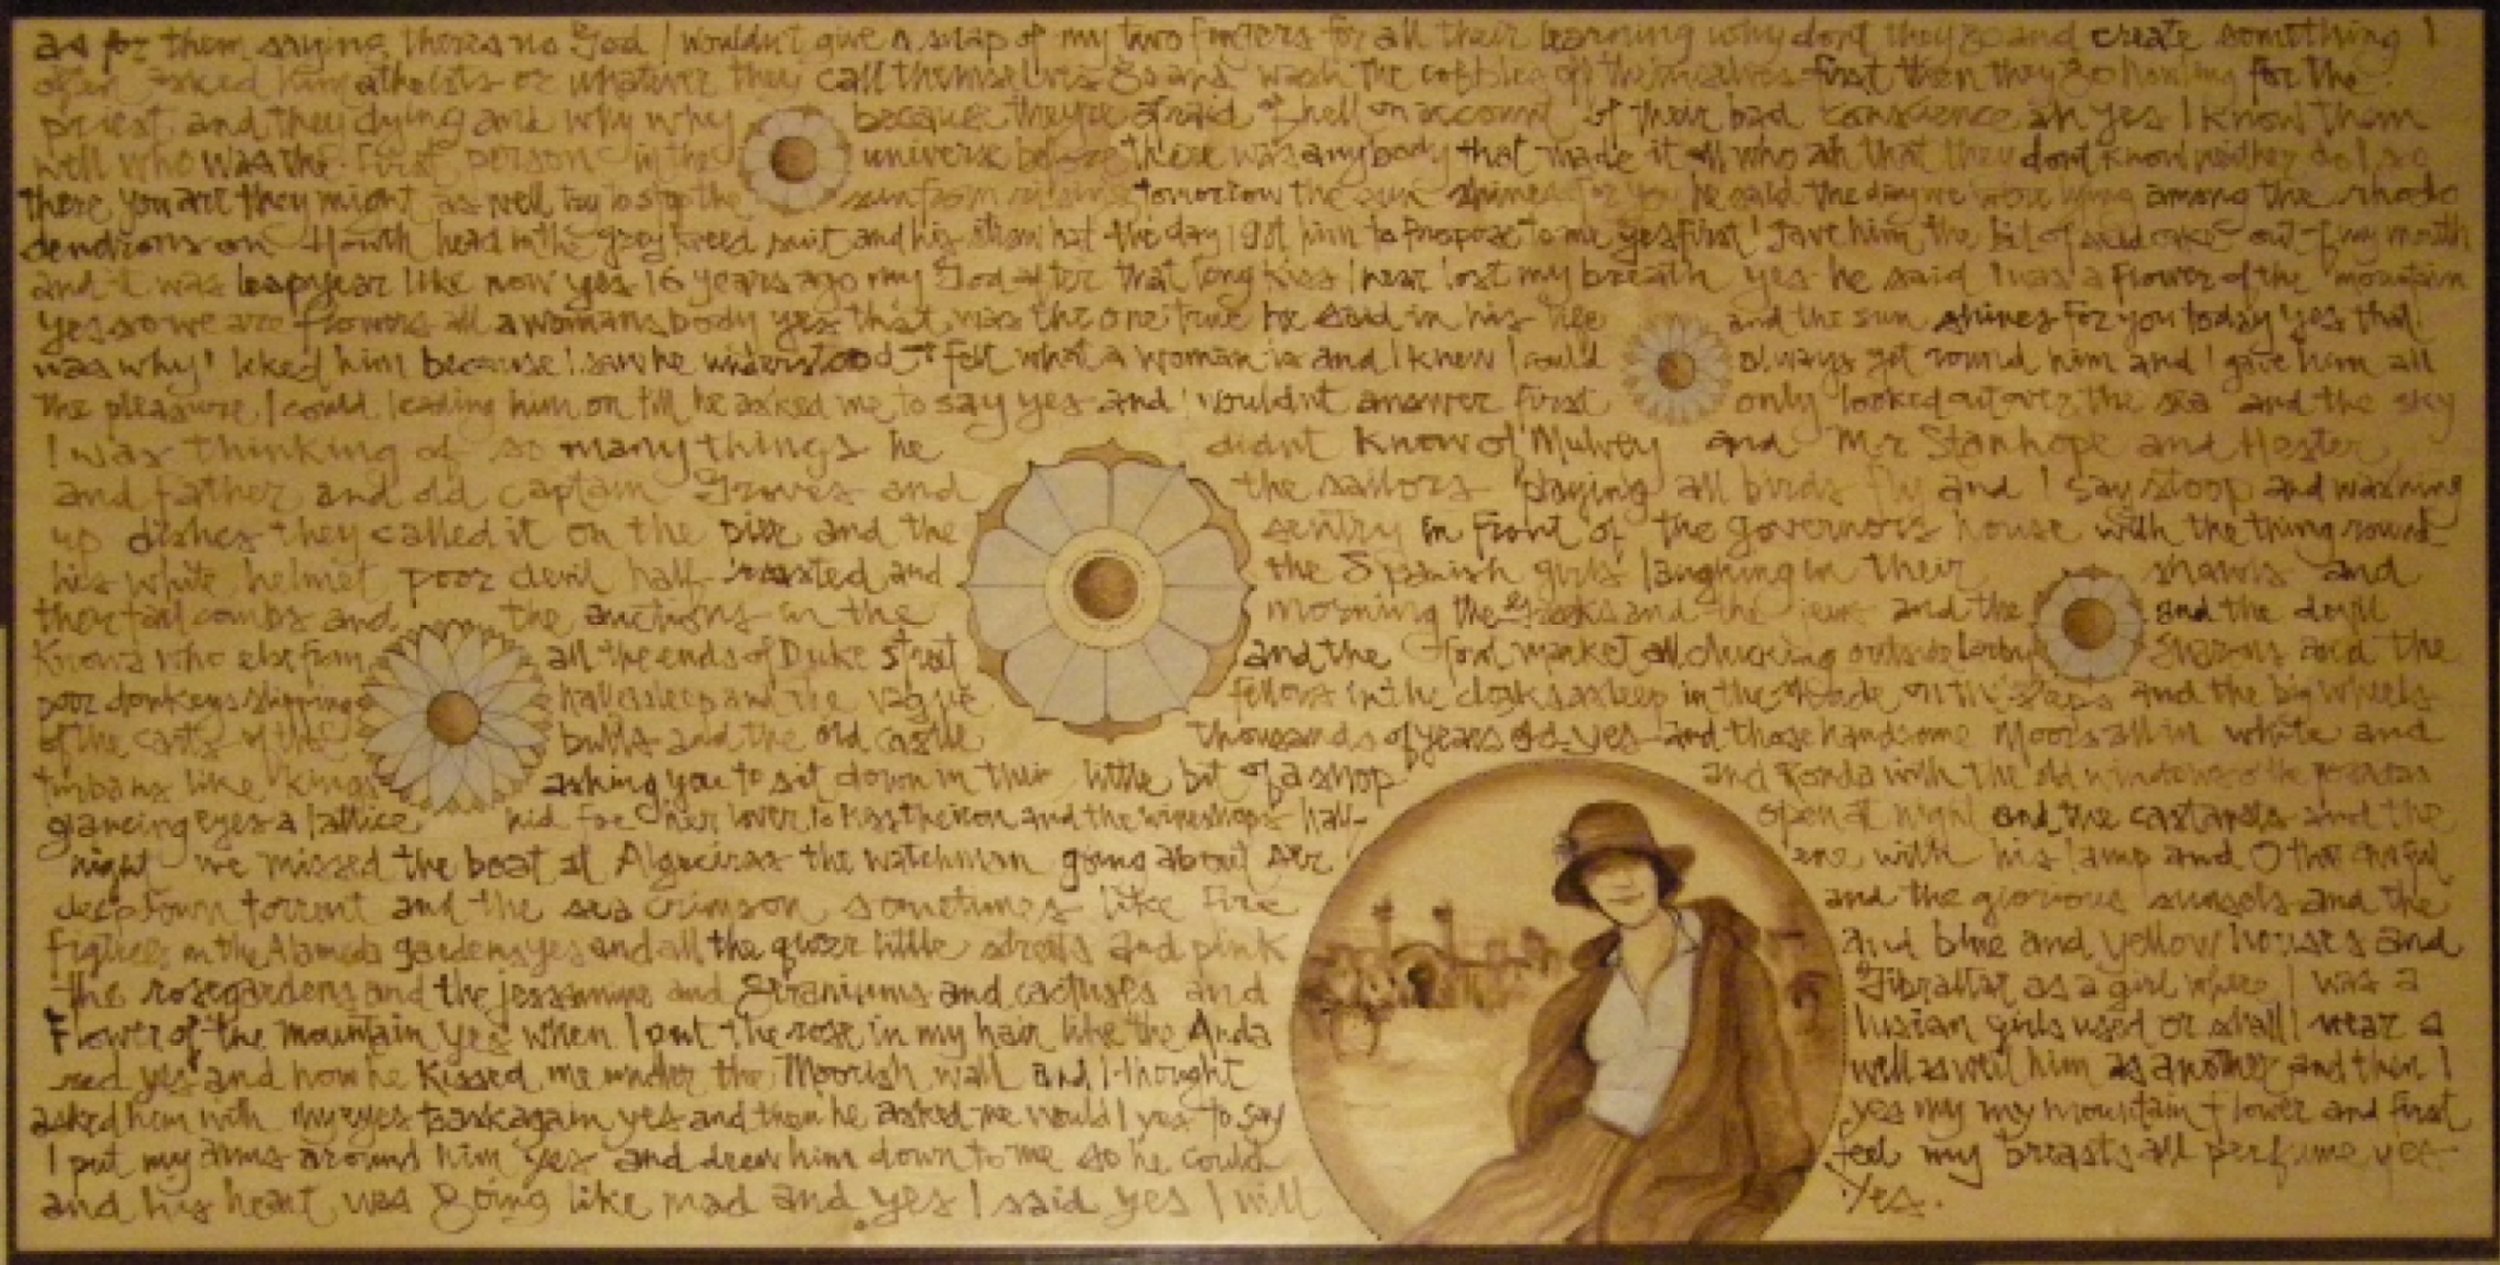 as for them saying theres no God I wouldnt give a snap of my two fingers for all their learning why dont they go and create something I
often asked him atheists or whatever they call themselves go and wash the cobbles off themselves first then they go howling for the
priest and they dying and why why because theyre afraid of hell on account of their bad conscience ah yes I know them
well who was the first person in the universe before there was anybody that made it all who ah that they dont know neither do I so
there you are they might as well try to stop the sun from rising tomorrow the sun shines for you he said the day we were lying among the rhodo
dendrons on Howth head in the grey tweed suit and his straw hat the day I got him to propose to me yes first I gave him the bit of seedcake out of my mouth
and it was leapyear like now yes 16 years ago my God after that long kiss I near lost my breath yes he said I was a flower of the mountain
yes so we are flowers all a womans body yes that was the one true he said in his life and the sun shines for you today yes that
was why I liked him because I saw he understood or felt what a woman is and I knew I could always get round him and I gave him all
the pleasure I could leading him on till he asked me to say yes and I wouldnt answer first only looked out over the sea and the sky
I was thinking of so many things he didnt know of Mulvey and Mr Stanhope and Hester
and father and old captain Groves and the sailors playing all birds fly and I say stoop and washing
up dishes they called it on the pier and the sentry in front of the governors house with the thing round
his white helmet poor devil half roasted and the Spanish girls laughing in their shawls and
their tall combs and the auctions in the morning the Greeks and the jews and the and the devil
knows who else from all the ends of Duke street and the fowl market all clucking outside Larby Sharons and the
poor donkeys slipping half asleep and the vague fellows in the cloaks asleep in the shade on the steps and the big wheels
of the carts of the bulls and the old castle thousands of years old yes and those handsome Moors all in white and
turbans like kings asking you to sit down in their little bit of a shop and Ronda with the old windows of the posadas
glancing eyes a lattice hid for her lover to kiss the iron and the wineshops half open at night and the castanets and the
night we missed the boat at Algeciras the watchman going about ser ene with his lamp and O that awful
deepdown torrent and the sea crimson sometimes like fire and the glorious sunsets and the
figtrees in the Alameda gardens yes and all the queer little streets and pink and blue and yellow houses and
the rosegardens and the jessamine and geraniums and cactuses and Gibraltar as a girl where I was a
Flower of the mountain yes when I put the rose in my hair like the Anda lusian girls used or shall I wear a
red yes and how he kissed me under the Moorish wall and I thought well as well him as another and then I
asked him with my eyes to ask again yes and then he asked me would I yes to say yes my my mountain flower and first
I put my arms around him yes and drew him down to me so he could feel my breasts all perfume yes
and his heart was going like mad and yes I said yes I will Yes.